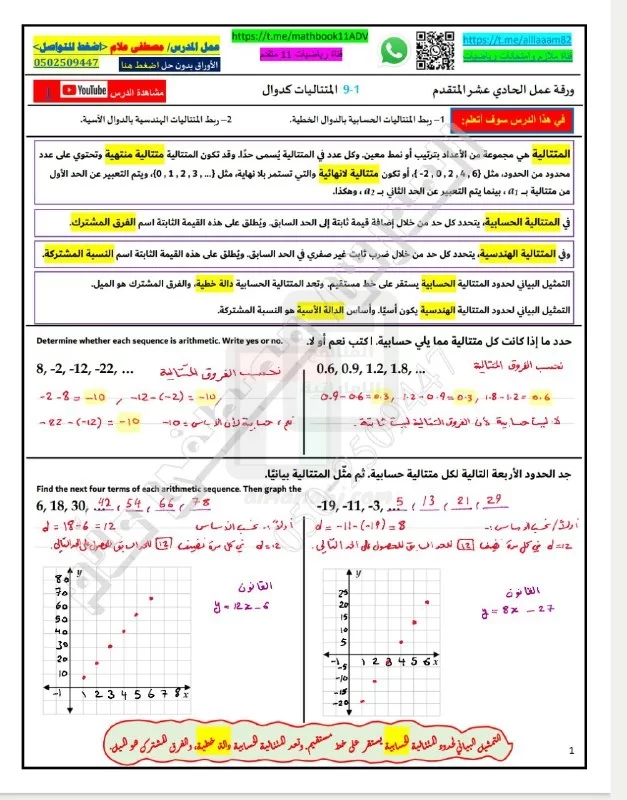 عمل المدرس/ مصطفى علام <اضغط للتواصل>
0502509447
الأوراق بدون حل اضغط هنا
https://t.me/mathbook11ADV
قناة رياضيات 11 متقدم
https://t.me/alllaaam82
قناة ملازم وامتحانات رياضيات
ورقة عمل الحادي عشر المتقدم
9-1 المتتاليات كدوال
مشاهدة الدرس YouTube
في هذا الدرس سوف أتعلم:
1– ربط المتتاليات الحسابية بالدوال الخطية.
2– ربط المتتاليات الهندسية بالدوال الأسية.
المتتالية هي مجموعة من الأعداد بترتيب أو نمط معين. وكل عدد في المتتالية يُسمى حدًا. وقد تكون المتتالية متتالية منتهية وتحتوي على عدد
محدود من الحدود، مثل {6 , 4 , 2 , 0 , 2-}، أو تكون متتالية لانهائية والتي تستمر بلا نهاية، مثل {... , 3 , 2 , 1 , 0}، ويتم التعبير عن الحد الأول
من متتالية بـ a₁ ، بينما يتم التعبير عن الحد الثاني بـ a₂ ، وهكذا.
في المتتالية الحسابية، يتحدد كل حد من خلال إضافة قيمة ثابتة إلى الحد السابق. ويُطلق على هذه القيمة الثابتة اسم الفرق المشترك.
وفي المتتالية الهندسية، يتحدد كل حد من خلال ضرب ثابت غير صفري في الحد السابق. ويُطلق على هذه القيمة الثابتة اسم النسبة المشتركة.
التمثيل البياني لحدود المتتالية الحسابية يستقر على خط مستقيم. وتعد المتتالية الحسابية دالة خطية، والفرق المشترك هو الميل.
التمثيل البياني لحدود المتتالية الهندسية يكون أسيًا. وأساس الدالة الأسية هو النسبة المشتركة.
حدد ما إذا كانت كل متتالية مما يلي حسابية. اكتب نعم أو لا.
Determine whether each sequence is arithmetic. Write yes or no.
0.6, 0.9, 1.2, 1.8, ...
نحسب الفروق المتتالية
0.9-0.6=0.3, 1.2-0.9=0.3, 1.8-1.2=0.6
لا ليست حسابية لأن الفروق المتتالية ليست ثابتة.
8, -2, -12, -22, ...
نحسب الفروق المتتالية
-2-8=-10 , -12-(-2)=-10
-22-(-12)=-10
نعم، حسابية لأن الأساس =-10
جد الحدود الأربعة التالية لكل متتالية حسابية. ثم مثّل المتتالية بيانيًا.
Find the next four terms of each arithmetic sequence. Then graph the
-19, -11, -3, ... 5, 13, 21, 29
أولاً/ نحسب الأساس:-
d=-11-(-19)=8
d=12 في كل مرة نضيف 12 للحد السابق للحصول على الحد التالي.
القانون
y=8x-27
y
25
20
15
10
5
-1 1 2 3 4 5 6 x
-5
-10
-15
-20
6, 18, 30, ... 42, 54, 66, 78
أولاً:- نحسب الأساس
d=18-6=12
d=12 في كل مرة نضيف 12 للحد السابق للحصول على الحد التالي.
القانون
y=12x-6
y
80
70
60
50
40
30
20
10
-1 1 2 3 4 5 6 7 8 x
التمثيل البياني لحدود المتتالية الحسابية يستقر على خط مستقيم. وتعد المتتالية الحسابية دالة خطية، والفرق المشترك هو الميل.
1